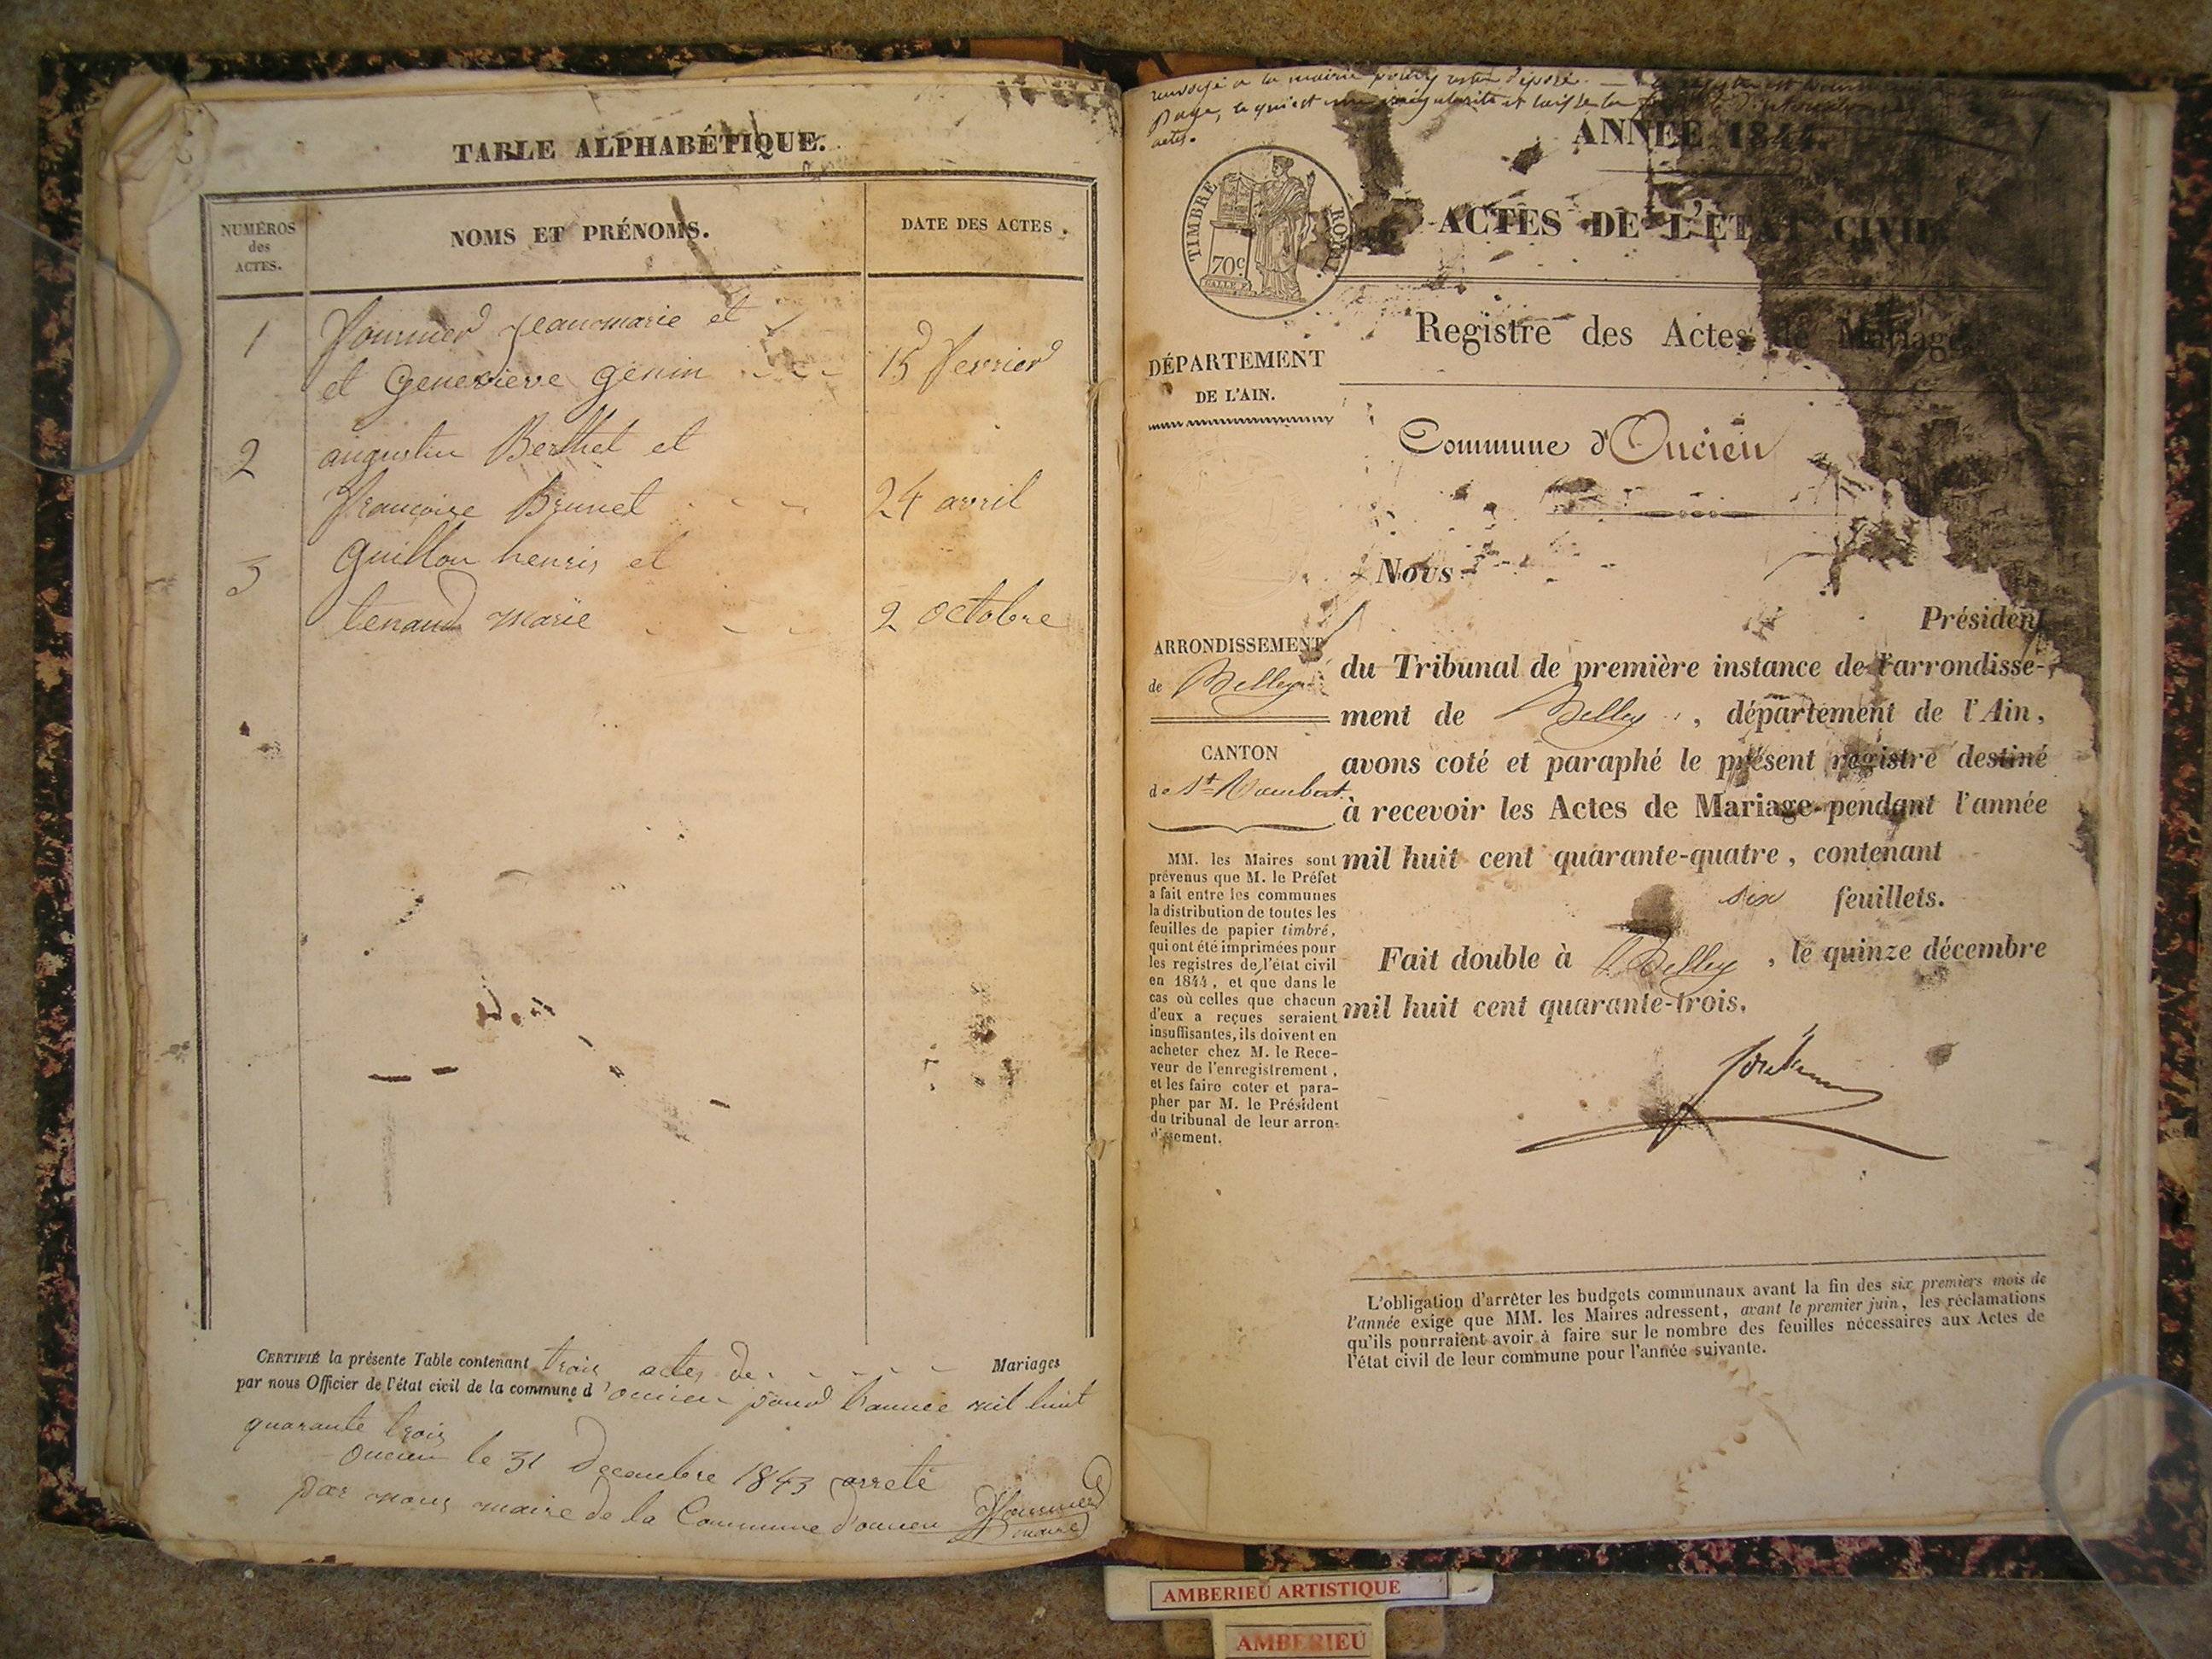 TABLE ALPHABÉTIQUE.
NUMÉROS
des
ACTES.
NOMS ET PRÉNOMS.
DATE DES ACTES.
1
jeanmarie et
et Genevieve genin
15 fevrier
2
augustin Berthet et
françoise Brunet
24 avril
3
Guillon henris et
tenand marie
2 octobre
CERTIFIÉ la présente Table contenant trois actes de Mariages
par nous Officier de l'état civil de la commune d'oncieu pour l'année mil huit
quarante trois
oncieu le 31 decembre 1843 arreté
par nous maire de la Commune d'oncieu
maire
renvoyé a la mairie pour y rester déposé.
page, ce qui est une irrégularité et
actes.
ANNÉE 1844.
TIMBRE ROYAL
70c
ACTES DE L'ÉTAT CIVIL.
Registre des Actes de Mariage
DÉPARTEMENT
DE L'AIN.
Commune d'Oncieu
Nous
Président
ARRONDISSEMENT
de Belley
du Tribunal de première instance de l'arrondisse-
ment de Belley, département de l'Ain,
CANTON
de St Rambert
avons coté et paraphé le présent registre destiné
à recevoir les Actes de Mariage pendant l'année
mil huit cent quarante-quatre, contenant
six feuillets.
Fait double à Belley, le quinze décembre
mil huit cent quarante-trois.
MM. les Maires sont
prévenus que M. le Préfet
a fait entre les communes
la distribution de toutes les
feuilles de papier timbré,
qui ont été imprimées pour
les registres de l'état civil
en 1844, et que dans le
cas où celles que chacun
d'eux a reçues seraient
insuffisantes, ils doivent en
acheter chez M. le Rece-
veur de l'enregistrement,
et les faire coter et para-
pher par M. le Président
du tribunal de leur arron-
dissement.
L'obligation d'arrêter les budgets communaux avant la fin des six premiers mois de
l'année exige que MM. les Maires adressent, avant le premier juin, les réclamations
qu'ils pourraient avoir à faire sur le nombre des feuilles nécessaires aux Actes de
l'état civil de leur commune pour l'année suivante.
AMBERIEU ARTISTIQUE
AMBERIEU